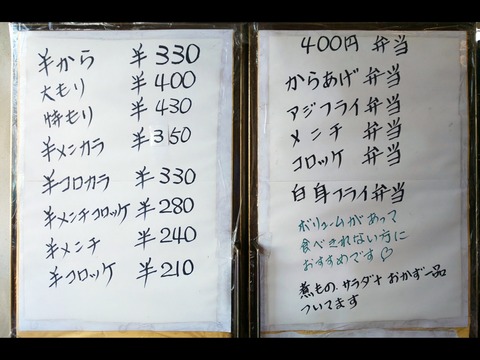 半から ¥330
大もり ¥400
特もり ¥430
半メンカラ ¥350
半コロカラ ¥330
半メンチコロッケ ¥280
半メンチ ¥240
半コロッケ ¥210
400円 弁当
からあげ 弁当
アジフライ 弁当
メンチ 弁当
コロッケ 弁当
白身フライ弁当
ボリュームがあって
食べきれない方に
おすすめです♡
煮もの、サラダ+おかず一品
ついてます